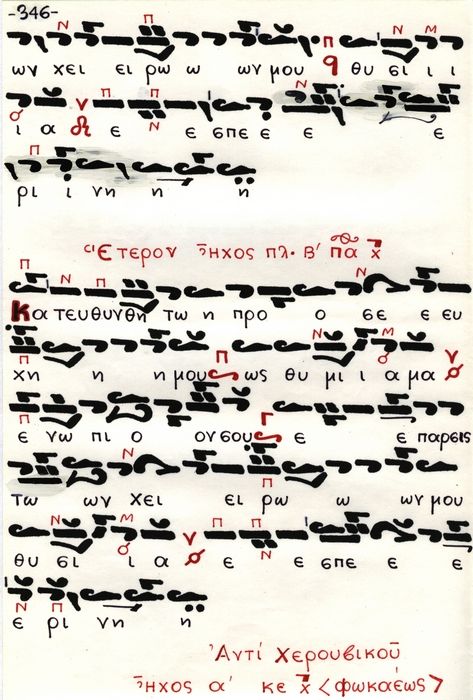 -346-
ων χει ει ρω ω ων μου θυ σι ι ι
ι α ε ε σπε ε ε ε
ρι ι νη η η
Ἕτερον Ἦχος πλ. Β΄ πα
Κα τευθυνθη τω η προ ο σε ε ευ
χη η η μου ως θυ μι ι α μα
ε νω πι ο ον σου ε ε παρσις
τω ων χει ει ρω ω ων μου
θυ σι ι α ε ε σπε ε ε
ε ρι νη η
Ἀντί Χερουβικοῦ
Ἦχος α΄ κε χ <φωκαέως>